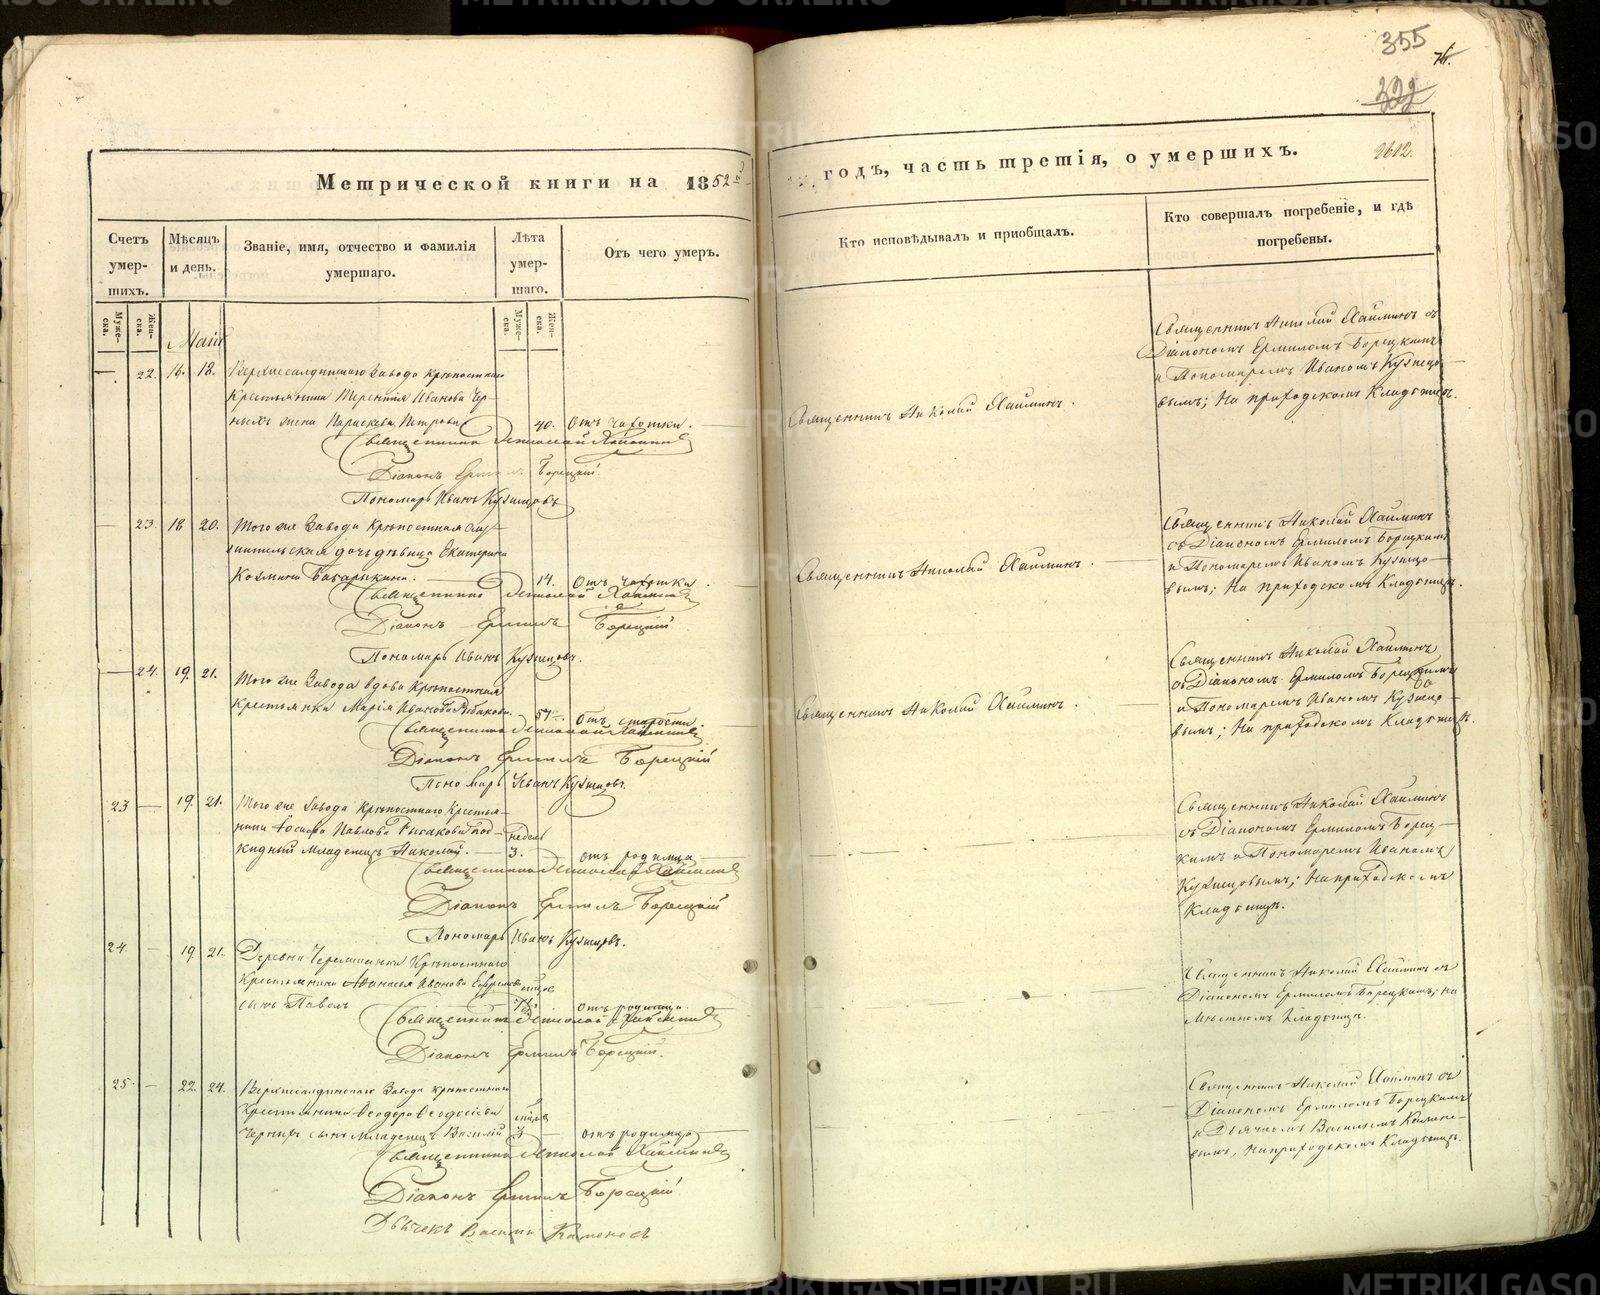 355
322
2612.
Метрической книги на 1852 й
годъ, часть третія, о умершихъ.
Счетъ умер-шихъ.
Мѣсяцъ и день.
Званіе, имя, отчество и фамилія умершаго.
Лѣта умер-шаго.
Отъ чего умеръ.
Кто исповѣдывалъ и приобщалъ.
Кто совершалъ погребеніе, и гдѣ погребены.
Муже-ска.
Жен-ска.
Муже-ска.
Жен-ска.
Маій
22. 16. 18. Верхнесалдинскаго Завода Крѣпостнаго
Крестьянина Терентія Иванова Чер-
ныхъ жена Параскева Петрова 40. Отъ чахотки.
Священникъ Николай Хаймин
Діаконъ Ермилъ Борецкій.
Пономарь Иванъ Кузнецовъ
Священникъ Николай Хайминъ.
Священникъ Николай Хайминъ съ
Діакономъ Ермиломъ Борецкимъ
и Пономаремъ Иваномъ Кузнецо-
вымъ; На приходскомъ Кладбищѣ.
23. 18 20. Того же Завода Крѣпостная слу-
жительская дочь дѣвица Екатерина
Козмина 14. Отъ чахотки.
Священникъ Николай Хайминъ
Діаконъ Ермилъ Борецкій
Пономарь Иванъ Кузнецовъ.
Священникъ Николай Хайминъ.
Священникъ Николай Хайминъ
съ Діакономъ Ермиломъ Борецкимъ
и Пономаремъ Иваномъ Кузнецо-
вымъ; На приходскомъ Кладбищѣ.
24. 19. 21. Того же Завода вдова Крѣпостная
крестьянка Марія Иванова Рыбакова. 57. Отъ старости.
Священникъ Николай Хайминъ
Діаконъ Ермилъ Борецкій
Пономарь Иванъ Кузнецовъ.
Священникъ Николай Хайминъ.
Священникъ Николай Хайминъ
съ Діакономъ Ермиломъ Борецкимъ
и Пономаремъ Иваномъ Кузнецо-
вымъ; На приходскомъ Кладбищѣ.
23 19. 21. Того же Завода Крѣпостнаго Крестья-
нина Павлова Рыбакова под-
кидный младенецъ Николай. недель 3. отъ родимца
Священникъ Николай Хайминъ
Діаконъ Ермилъ Борецкій
Пономарь Иванъ Кузнецовъ.
Священникъ Николай Хайминъ
съ Діакономъ Ермиломъ Борец-
кимъ и Пономаремъ Иваномъ
Кузнецовымъ; На приходскомъ
Кладбищѣ.
24. 19. 21. Деревни Крѣпостнаго
Крестьянина Аѳанасья Иванова
сынъ Павелъ отъ родимца
Священникъ Николай Хайминъ
Діаконъ Ермилъ Борецкій.
Священникъ Николай Хайминъ съ
Діакономъ Ермиломъ Борецкимъ; на
Мѣстномъ Кладбищѣ.
25. 22. 24. Верхнесалдинскаго Завода крѣпостнаго
Крестьянина Ѳеодора Ѳеодосіева
Черныхъ сынъ младенецъ Василій 3 отъ родимца
Священникъ Николай Хайминъ
Діаконъ Ермилъ Борецкій
Дьячекъ Василій
Священникъ Николай Хайминъ съ
Діакономъ Ермиломъ Борецкимъ
и Дьячкомъ Василіемъ
вымъ, На приходскомъ Кладбищѣ.
METRIKI.GASO-URAL.RU